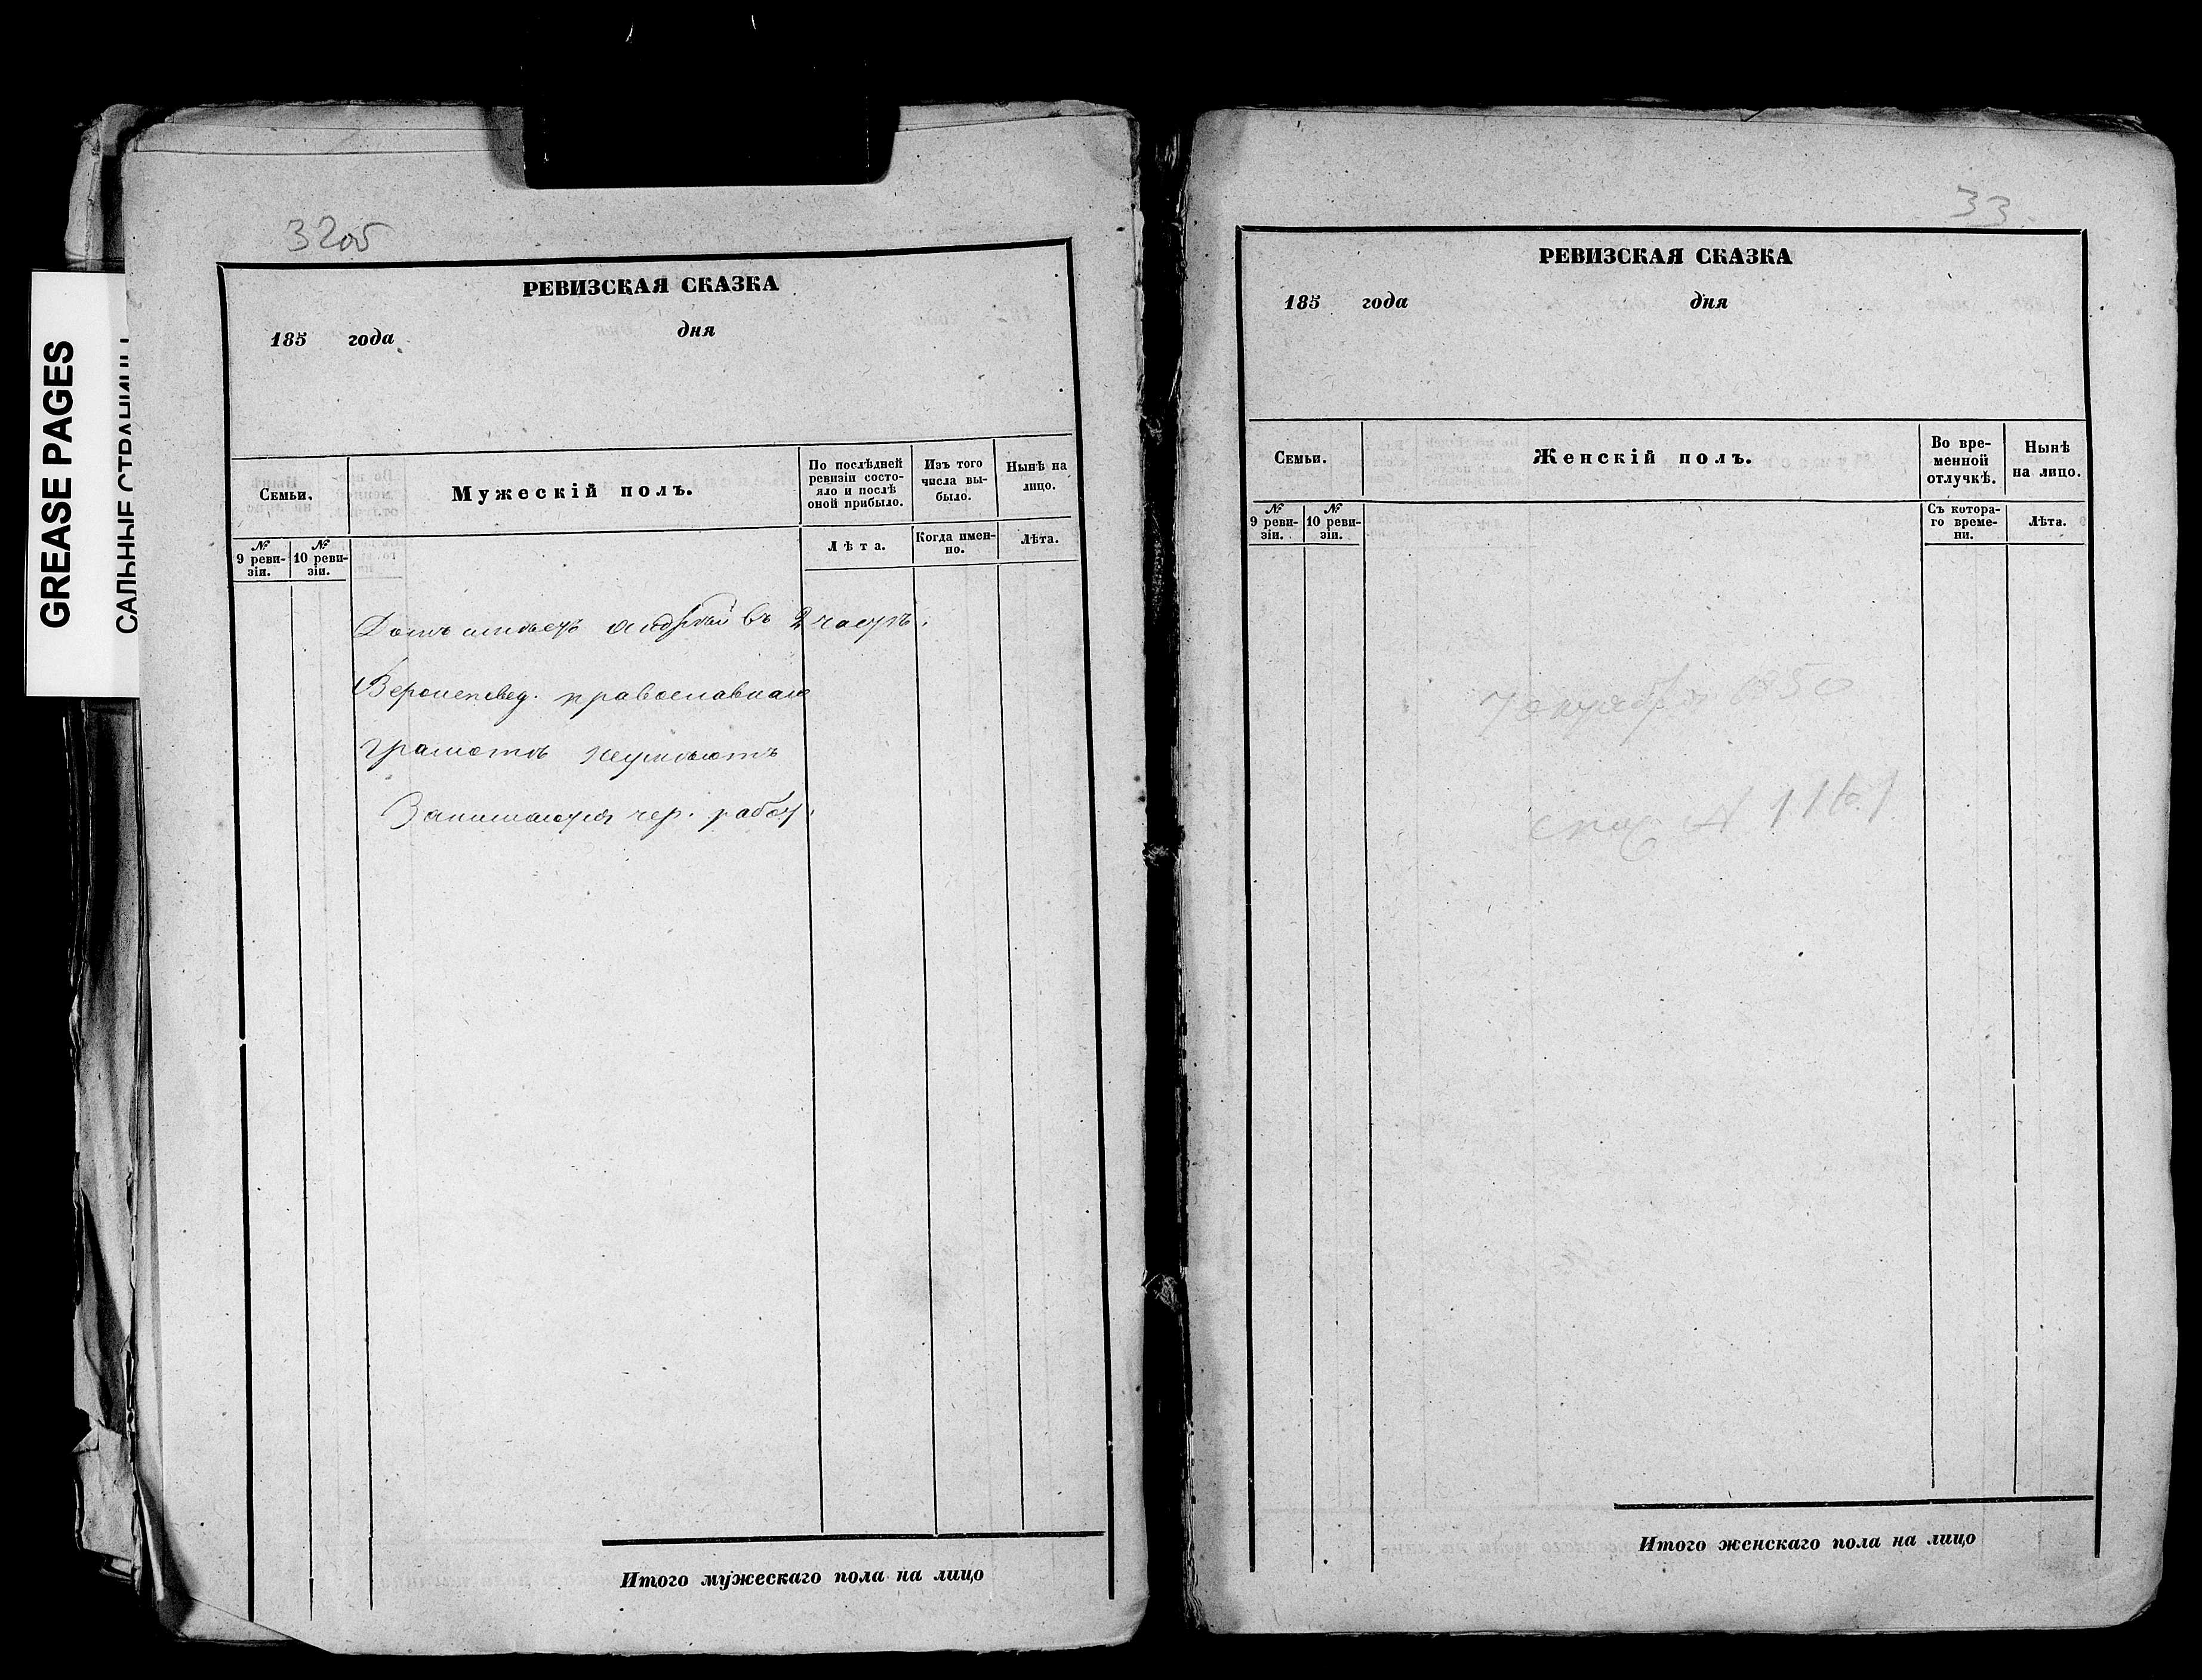 GREASE PAGES
САЛЬНЫЕ СТРАНИЦЫ
32об
РЕВИЗСКАЯ СКАЗКА
185 года дня
Семьи.
Мужескій полъ.
По послѣдней
ревизіи состо-
яло и послѣ
оной прибыло.
Изъ того
числа вы-
было.
Нынѣ на
лицо.
№
9 реви-
зіи.
№
10 реви-
зіи.
Лѣта.
Когда имен-
но.
Лѣта.
Домъ имѣетъ Андрей въ 2 част.
Вероисповед. православнаго
Грамотѣ неумѣютъ
Занимаются чер. работ.
Итого мужескаго пола на лицо
33
РЕВИЗСКАЯ СКАЗКА
185 года дня
Семьи.
Женскій полъ.
Во вре-
менной
отлучкѣ.
Нынѣ
на лицо.
№
9 реви-
зіи.
№
10 реви-
зіи.
Съ котора-
го време-
ни.
Лѣта.
7 1850
№
Итого женскаго пола на лицо